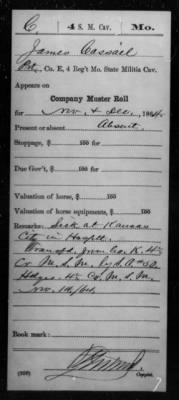 C. 4 S. M. Cav. Mo.
James Cassael
Pvt., Co. E, 4 Reg't Mo. State Militia Cav.
Appears on
Company Muster Roll
for Nov. & Dec., 1864.
Present or absent Absent.
Stoppage, $ 100 for
Due Gov't, $ 100 for
Valuation of horse, $ 100
Valuation of horse equipments, $ 100
Remarks: Sick at Kansas
City in Hosptl.
Transfd. from Co. K. 4th
Co M. S. M. by S. O. No
Hdqrs. 4th C. M. S. M.
Nov. 1st/64.
Book mark:
(358) Copyist.